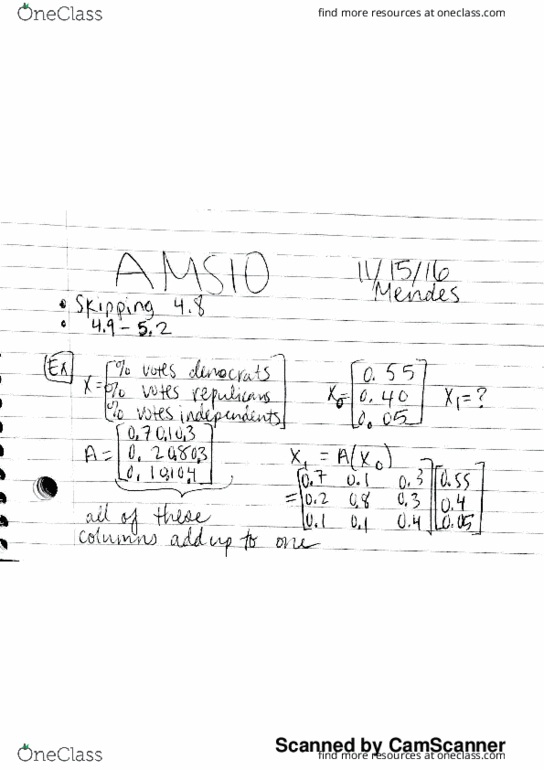 OneClass
find more resources at oneclass.com
AMS10
11/15/16
Mendes
• Skipping 4.8
• 4.9-5.2
Ex
X = [% votes democrats
% votes repulicans
% votes independents]
X0 = [0.55
0.40
0.05]
X1 = ?
A = [0.70.10.3
0.20.80.3
0.10.10.4]
X1 = A(X0)
= [0.7 0.1 0.3
0.2 0.8 0.3
0.1 0.1 0.4] [0.55
0.4
0.05]
all of these
columns add up to one
Scanned by CamScanner
OneClass
find more resources at oneclass.com